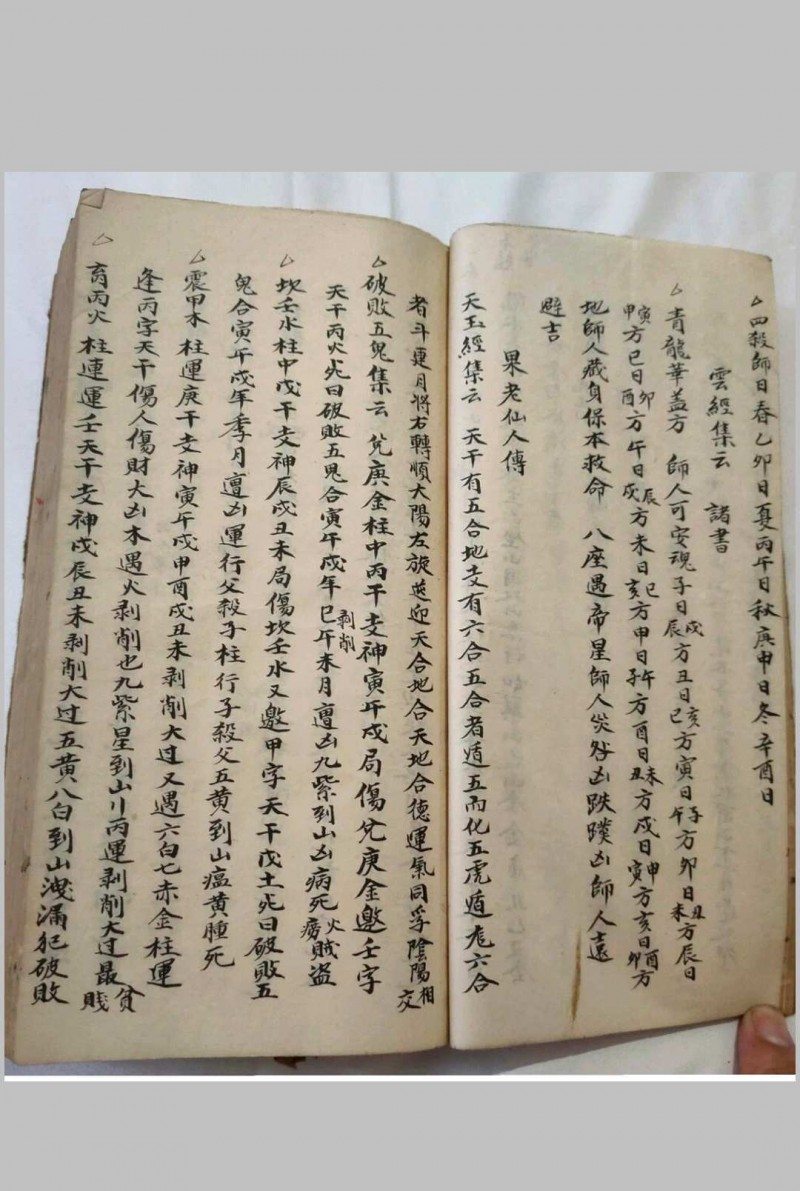 四殺師日春乙卯日夏丙午日秋庚申日冬辛酉日
雲經集云 諸書
青龍華蓋方 師人可安魂子日辰戌方丑日巳亥方寅日午子方卯日未丑方辰日
申寅方巳日酉卯方午日戌辰方未日亥巳方申日子午方酉日丑未方戌日寅申方亥日卯酉方
地師人藏身保本救命 八座遇帝星師人災咎凶跌蹼凶師人遠
避吉
果老仙人傳
天玉經集云 天干有五合地支有六合五合者遁五而化五虎遁尨六合
者斗建月將右轉順大陽左旋逆迎天合地合天地合德運氣同孚陰陽相交
破敗五鬼集云 兌庚金柱中丙干支神寅午戌局傷兌庚金邀壬字
天干丙火尅曰破敗五鬼合寅午戌年巳午未月剥削遭凶九紫到山凶病死火癆賊盜
坎壬水柱中戊干支神辰戌丑未局傷坎壬水又邀甲字天干戊土尅曰破敗五
鬼合寅午戌年季月遭凶運行父殺子柱行子殺父五黃到山瘟黃腫死
震甲木 柱運庚干支神寅午戌申酉戌丑未剥削大过又遇六白七赤金柱運
逢丙字天干傷人傷財大凶木遇火剥削也九紫星到山丨丙運剥削大过最貧賤
离丙火 柱連運壬天干支神戌辰丑未剥削大过五黄八白到山洩漏犯破敗